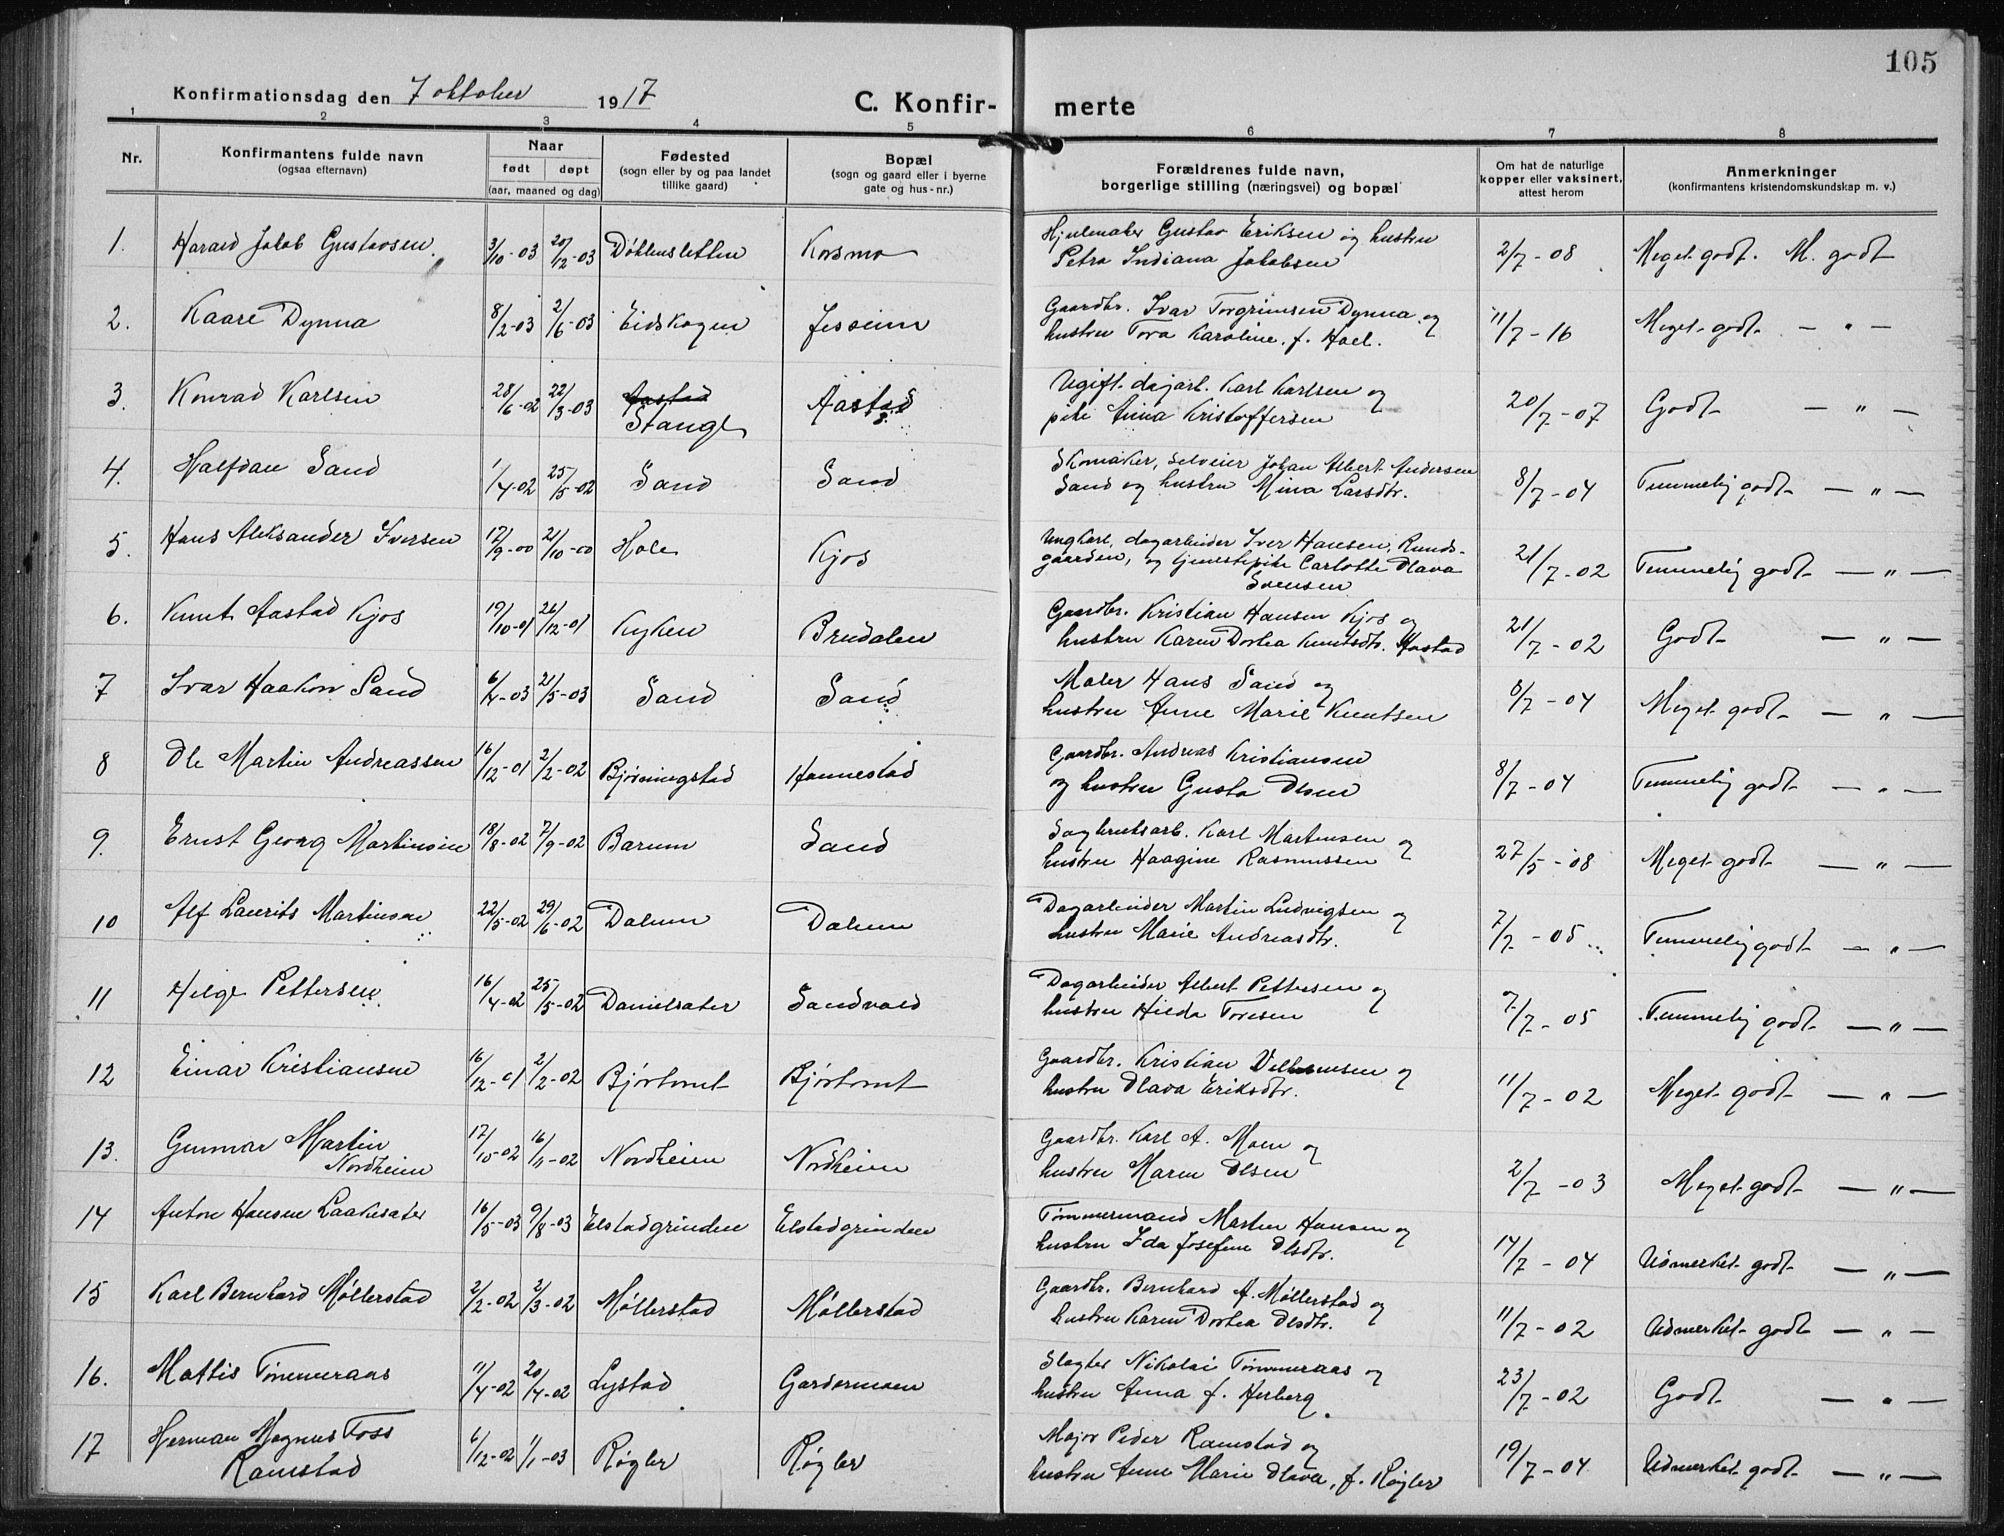 105
Konfirmationsdag den 7 oktober 1917 C. Konfir- merte
1 2 3 4 5 6 7 8
Nr. Konfirmantens fulde navn (ogsaa efternavn) Naar født døpt (aar, maaned og dag) Fødested (sogn eller by og paa landet tillike gaard) Bopæl (sogn og gaard eller i byerne gate og hus-nr.) Forældrenes fulde navn, borgerlige stilling (næringsvei) og bopæl Om hat de naturlige kopper eller vaksinert, attest herom Anmerkninger (konfirmantens kristendomskundskap m. v.)
1. Harald Jakob Gustavsen 3/10-03 20/12-03 Døhlensletten Kosmo Hjulmaker Gustav Eriksen og hustru 2/7-08 Meget godt. M. godt
Petra Indiana Jakobsen
2. Kaare Dynna 8/2-03 2/6-03 Eidskogen Jesseim Gaardbr. Ivar Torgrimsen Dynna og 11/7-16 Meget godt — " —
hustru Tora Karoline, f. Hoel.
3. Konrad Karlsen 28/6-02 22/3-03 Aastad Aastad Ugift dagarb. Karl Karlsen og 20/7-07 Godt — " —
Stange pike Anna Kristoffersen
4. Halfdan Sand 1/4-02 25/5-02 Sand Sand Skomaker, selveier Johan Albert Andersen 8/7-04 Temmelig godt — " —
Sand og hustru Mina Larsdtr.
5. Hans Aleksander Iversen 17/9-00 21/10-00 Hole Kjos Ungkarl, dagarbeider Iver Hansen, Runds- 21/7-02 Temmelig godt — " —
gaarden, og tjenestepike Carlotte Olava
Svensen
6. Knut Aastad Kjos 19/10-01 26/12-01 Kyken Brudalen Gaardbr. Kristian Hansen Kjos og 21/7-02 Godt — " —
hustru Karen Dortea Knutsdtr. Aastad
7 Ivar Haakon Sand 6/4-03 21/5-03 Sand Sand Maler Hans Sand og 8/7-04 Meget godt — " —
hustru Anne Marie Knutsen
8 Ole Martin Andreassen 16/12-01 2/2-02 Bjørningstad Hannestad Gaardbr. Andreas Kristiansen 8/7-04 Temmelig godt — " —
og hustru Gusta Olsen
9. Ernst Georg Martinsen 18/8-02 7/9-02 Barum Sand Sagbruksarb. Karl Martinsen og 27/5-08 Meget godt — " —
hustru Haagine Rasmussen
10 Alf Laurits Martinsen 22/5-02 29/6-02 Dalum Dalum Dagarbeider Martin Ludvigsen og 7/7-05 Temmelig godt — " —
hustru Marie Andreasdtr.
11 Helge Pettersen 16/4-02 25/5-02 Danielsæter Sandvold Dagarbeider Albert Pettersen og 7/7-05 Temmelig godt — " —
hustru Hilda Toresen
12 Einar Kristiansen 16/12-01 2/2-02 Bjørtomt Bjørtomt Gaardbr. Kristian Velhemsen og 11/7-02 Meget godt — " —
hustru Olava Eriksdtr.
13. Gunnar Martin 17/10-02 16/11-02 Nordheim Nordheim Gaardbr. Karl A. Moen og 2/7-03 Meget godt — " —
Nordheim hustru Maren Olsen
14 Anton Hansen Laakesæter 16/5-03 9/8-03 Elstadgrinden Elstadgrinden Tømmermand Martin Hansen og 14/7-04 Udmerket godt — " —
hustru Ida Josefine Olsdtr.
15 Karl Bernhard Møllerstad 2/2-02 2/3-02 Møllerstad Møllerstad Gaardbr. Bernhard A. Møllerstad og 11/7-02 Udmerket godt — " —
hustru Karen Dortea Olsdtr.
16. Mattis Tømmeraas 11/4-02 20/4-02 Lystad Gardermoen Slagter Nikolai Tømmeraas og 23/7-02 Godt — " —
hustru Anna f. Herberg.
17 Herman Magnus Foss 6/12-02 1/1-03 Røgler Røgler Major Peder Ramstad og 19/7-04 Udmerket godt — " —
Ramstad hustru Anne Marie Olava, f. Røgler